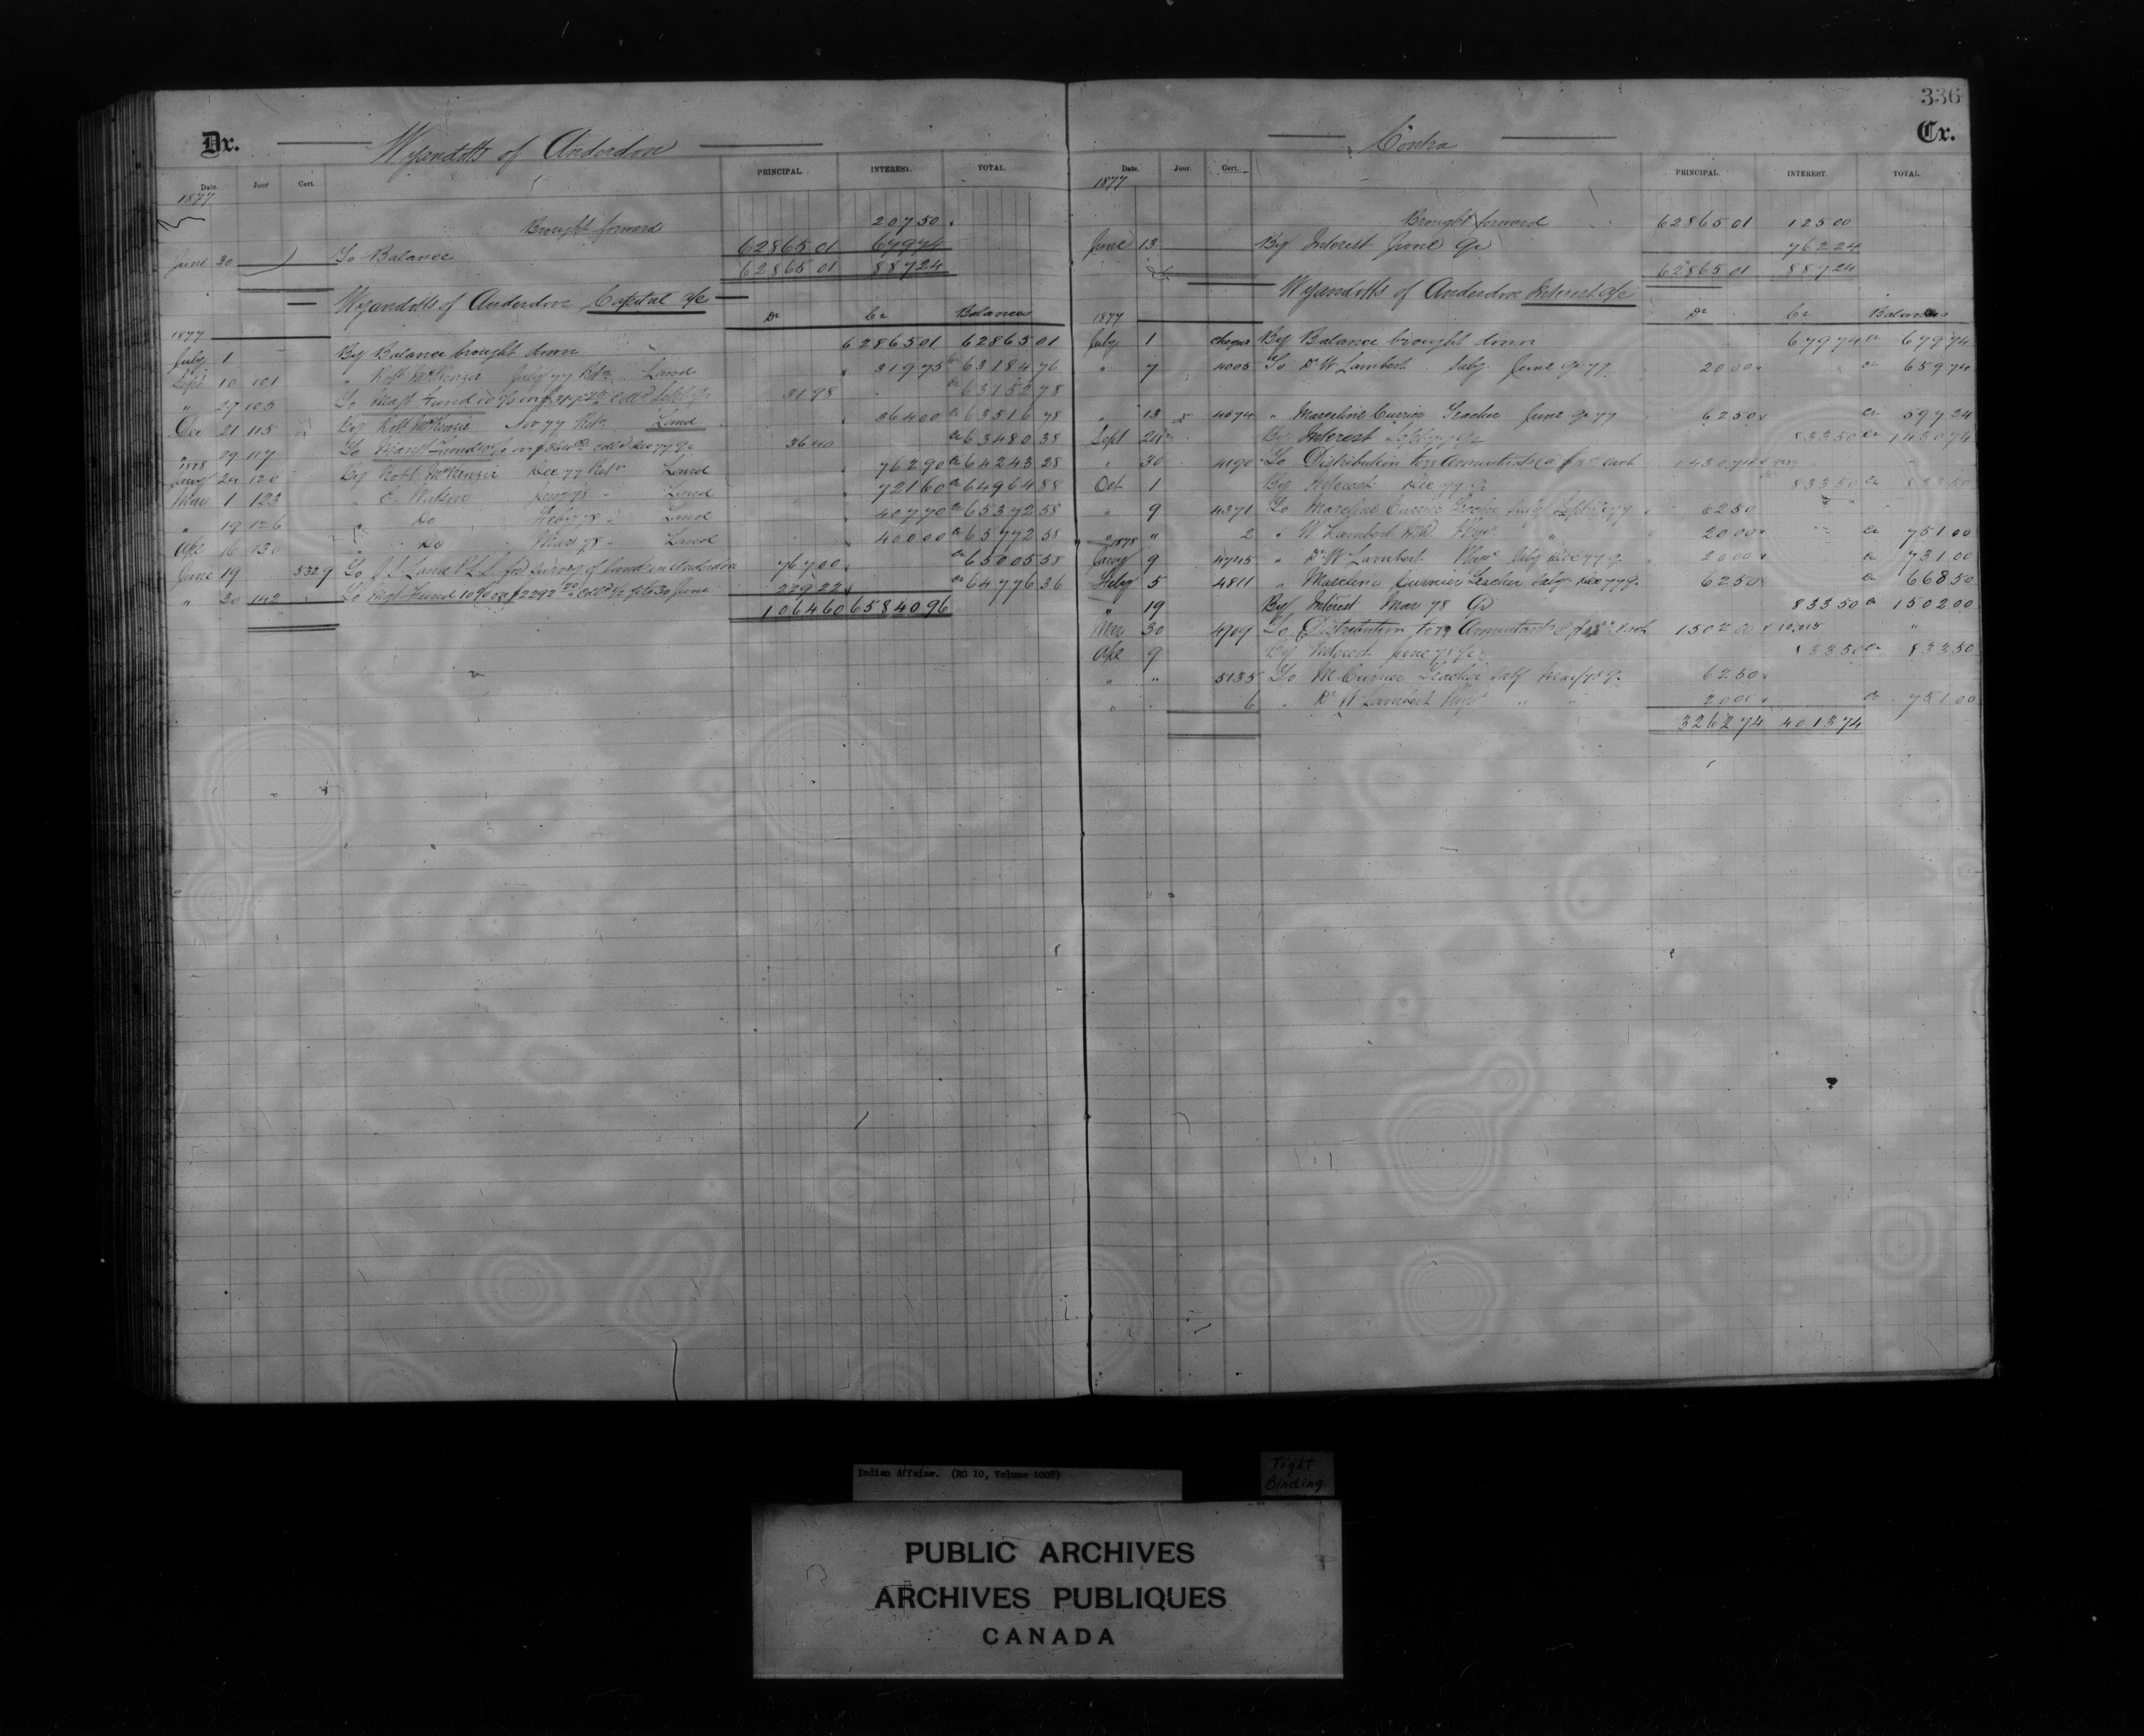 336
Dr. Wyandotts of Anderdon
Date. Jour Cert. PRINCIPAL. INTEREST. TOTAL.
1877
Brought forward 207 50
June 30 To Balance 62865 01 679 74
62865 01 887 24
Wyandotts of Anderdon Capital a/c
Dr Cr Balances
1877
July 1 By Balance brought down 62865 01 62865 01
Sept 10 101 " Robt McKenzie July 77 Retn Land 319 75 Cr 63184 76
" 29 105 To Magt Fund 10% on 31 98 Cr 63152 78
Dec 21 115 By Robt McKenzie Nov 77 Retn Land 364 00 Cr 63516 78
" 29 117 To Managt Fund 10% on Dec 77 Qr 36 40 Cr 63480 38
1878
Jany 24 120 By Robt McKenzie Dec 77 Retn Land 762 90 Cr 64243 28
Mar 1 123 " E. Watson Jany 78 " Land 721 60 Cr 64964 88
" 19 126 " Do Feby 78 " Land 407 70 Cr 65372 58
Apl 16 130 " Do Mar 78 " Land 400 00 Cr 65772 58
June 19 5329 To Laird P.L.S. for survey of land in Anderdon 767 00 Cr 65005 58
" 30 142 To Mgt Fund 10% on $2292 20 to 30 June 229 22 Cr 64776 36
1064 60 65840 96
Contra Cr.
Date. Jour. Cert. PRINCIPAL. INTEREST. TOTAL
1877
Brought forward 62865 01 125 00
June 13 By Interest June Qr 762 24
62865 01 887 24
Wyandotts of Anderdon Interest a/c
Dr Cr Balances
1877
July 1 By Balance brought down 679 74 Cr 679 74
" 7 4005 To Dr W Lambert Saly June Qr 77 20 00 Cr 659 74
" 13 4074 " Marceline Currier Teacher June Qr 77 62 50 Cr 597 24
Sept 24 By Interest Sept 77 Qr 833 50 Cr 1430 74
" 30 4190 To Distribution to Annuitants @ each 1430 74
Oct 1 By Interest Dec 77 Qr 833 50 Cr 833 50
" 9 4371 To Marceline Currier Teacher Saly Sept Qr 77 62 50
" " 2 " W Lambert M.D. Physn " 20 00 Cr 751 00
1878
Jany 9 4745 " Dr W Lambert Physn Saly Dec 77 Q. 20 00 Cr 731 00
Feby 5 4811 " Marceline Currier Teacher Saly Dec 77 Q. 62 50 Cr 668 50
" 19 By Interest Mar 78 Qr 833 50 Cr 1502 00
Mar 30 4909 To Distribution to Annuitants @ each 1502 00 "
Apl 9 By Interest June 78 Qr 833 50 Cr 833 50
" " 5135 To M Currier Teacher Saly Mar 78 Q. 62 50
" " 6 " Dr W Lambert Physn " " 20 00 Cr 751 00
3262 74 4013 74
Indian Affairs. (RG 10, Volume 1008)
Tight
Binding.
PUBLIC ARCHIVES
ARCHIVES PUBLIQUES
CANADA